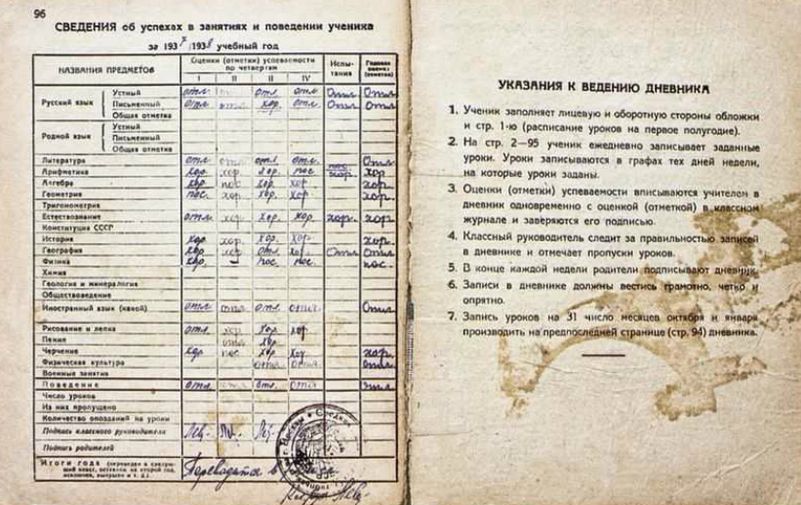 96
СВЕДЕНИЯ об успехах в занятиях и поведении ученика
за 1937/1938 учебный год
НАЗВАНИЯ ПРЕДМЕТОВ
Оценки (отметки) успеваемости по четвертям
I II III IV
Испытания
Годовая оценка (отметки)
Русский язык
Устный отл. отл. отл. Отл. Отл.
Письменный отл. отл. хор. отл. Отл. Отл.
Общая отметка
Родной язык
Устный
Письменный
Общая отметка
Литература отл. отл. отл. отл. Отл.
Арифметика хор. хор. хор. хор. пос. хор. хор
Алгебра хор. пос хор. хор хор.
Геометрия пос. хор. хор. хор хор.
Тригонометрия
Естествознание отл. хор. хор. хор. хор. хор.
Конституция СССР
История хор. хор. хор. хор. хор.
География хор. отл. Отл. Отл.
Физика хор. пос. пос. пос.
Химия
Геология и минералогия
Обществоведение
Иностранный язык (какой) отл. отл. отл. отл. Отл.
Рисование и лепка отл. хор. хор. хор.
Пение отл. хор.
Черчение хор. пос. хор. хор. хор.
Физическая культура отл. отл. отл.
Военные занятия
Поведение отл. отл. отл. отл. отл.
Число уроков
Из них пропущено
Количество опозданий на уроки
Подпись классного руководителя
Подпись родителей
Итоги года (переведен в следующий класс, оставлен на второй год, исключен, выпущен и т. д.) Переводится в
УКАЗАНИЯ К ВЕДЕНИЮ ДНЕВНИКА
1. Ученик заполняет лицевую и оборотную стороны обложки
и стр. 1-ю (расписание уроков на первое полугодие).
2. На стр. 2—95 ученик ежедневно записывает заданные
уроки. Уроки записываются в графах тех дней недели,
на которые уроки заданы.
3. Оценки (отметки) успеваемости вписываются учителем в
дневник одновременно с оценкой (отметкой) в классном
журнале и заверяются его подписью.
4. Классный руководитель следит за правильностью записей
в дневнике и отмечает пропуски уроков.
5. В конце каждой недели родители подписывают дневник.
6. Записи в дневнике должны вестись грамотно, четко и
опрятно.
7. Запись уроков на 31 число месяцев октября и января
производить на предпоследней странице (стр. 94) дневника.